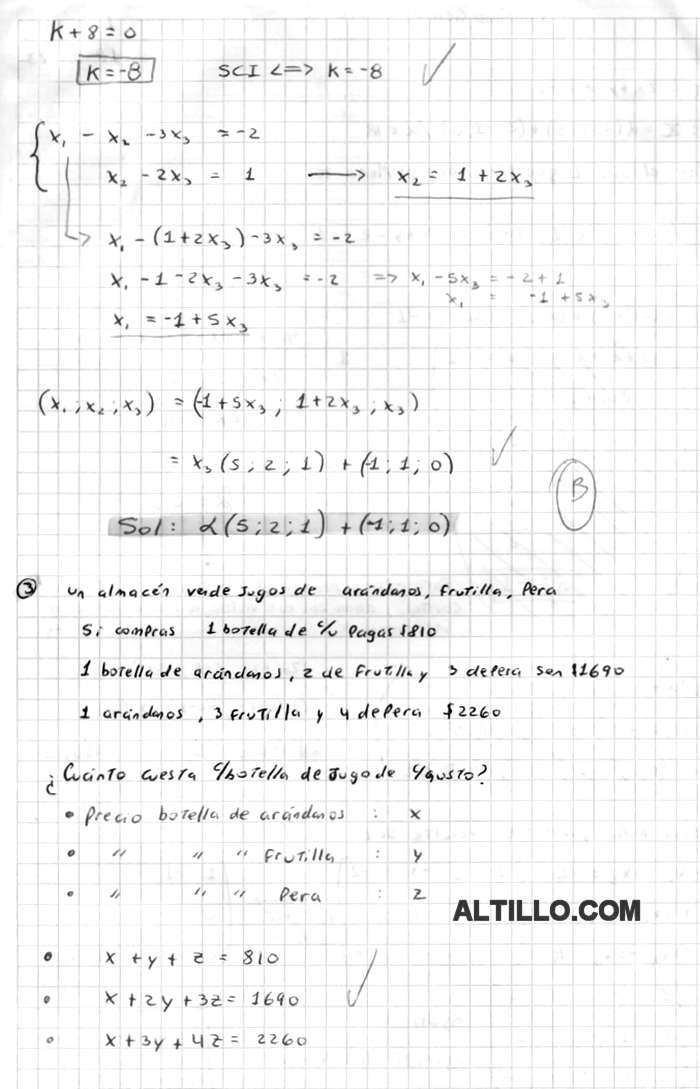 K + 8 = 0
K = -8 SCI <=> K = -8
x₁ - x₂ - 3x₃ = -2
x₂ - 2x₃ = 1 → x₂ = 1 + 2x₃
x₁ - (1 + 2x₃) - 3x₃ = -2
x₁ - 1 - 2x₃ - 3x₃ = -2 => x₁ - 5x₃ = -2 + 1
x₁ = -1 + 5x₃
x₁ = -1 + 5x₃
(x₁ ; x₂ ; x₃) = (-1 + 5x₃ ; 1 + 2x₃ ; x₃)
= x₃ (5 ; 2 ; 1) + (-1 ; 1 ; 0)
B
Sol: α (5 ; 2 ; 1) + (-1 ; 1 ; 0)
③ un almacén vende Jugos de arándanos, Frutilla, Pera
Si compras 1 botella de c/u Pagas $810
1 botella de arándanos, 2 de Frutilla y 3 de Pera son $1690
1 arándanos, 3 Frutilla y 4 de Pera $2260
¿Cuánto cuesta c/botella de Jugo de c/gusto?
• Precio botella de arándanos : x
• " " " Frutilla : y
• " " " Pera : z
ALTILLO.COM
• x + y + z = 810
• x + 2y + 3z = 1690
• x + 3y + 4z = 2260